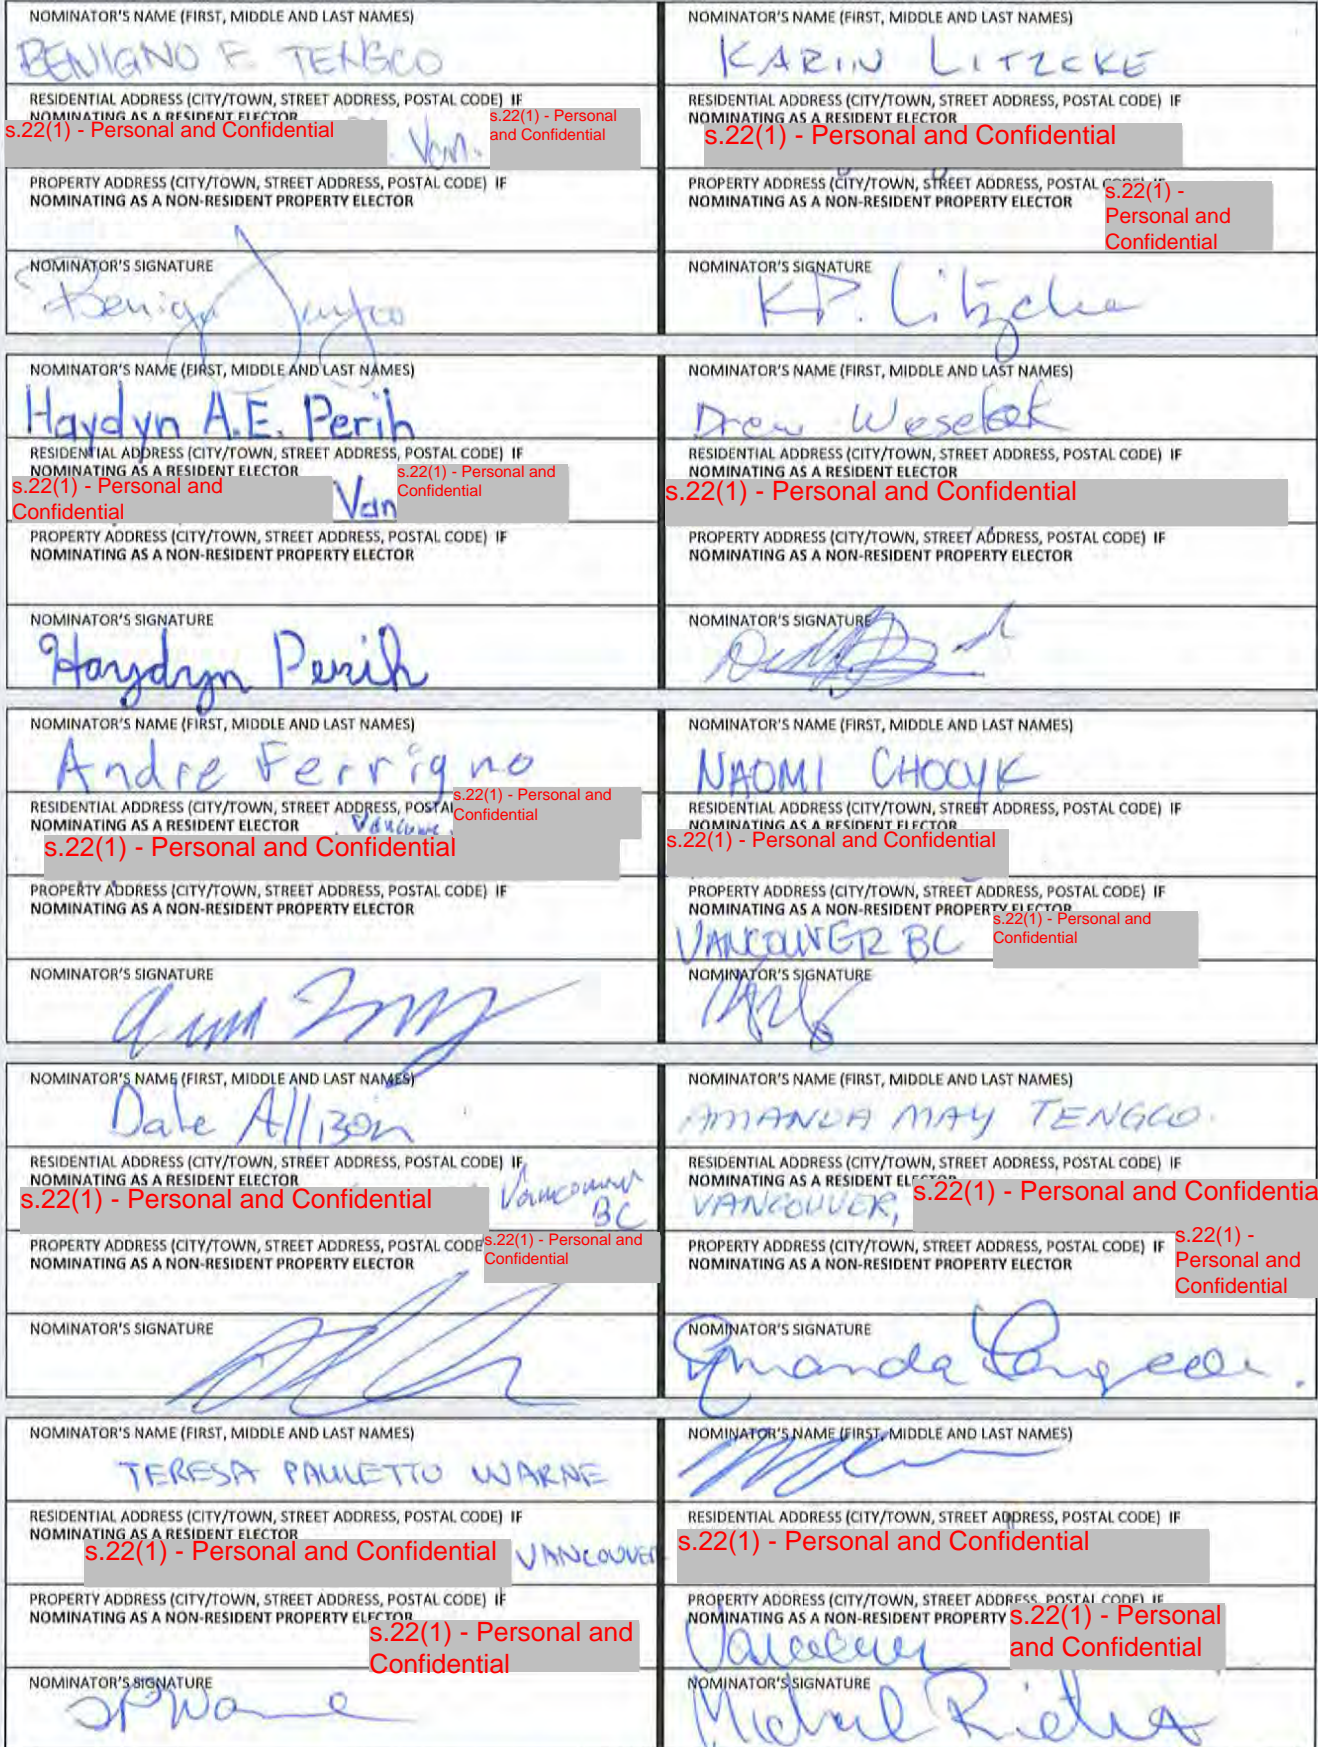 NOMINATOR'S NAME (FIRST, MIDDLE AND LAST NAMES)
BENIGNO F. TENGCO
RESIDENTIAL ADDRESS (CITY/TOWN, STREET ADDRESS, POSTAL CODE) IF
NOMINATING AS A RESIDENT ELECTOR
s.22(1) - Personal and Confidential
Van.
s.22(1) - Personal
and Confidential
PROPERTY ADDRESS (CITY/TOWN, STREET ADDRESS, POSTAL CODE) IF
NOMINATING AS A NON-RESIDENT PROPERTY ELECTOR
NOMINATOR'S SIGNATURE
NOMINATOR'S NAME (FIRST, MIDDLE AND LAST NAMES)
KARIN LITZCKE
RESIDENTIAL ADDRESS (CITY/TOWN, STREET ADDRESS, POSTAL CODE) IF
NOMINATING AS A RESIDENT ELECTOR
s.22(1) - Personal and Confidential
PROPERTY ADDRESS (CITY/TOWN, STREET ADDRESS, POSTAL
NOMINATING AS A NON-RESIDENT PROPERTY ELECTOR
s.22(1) -
Personal and
Confidential
NOMINATOR'S SIGNATURE
K.P. Litzcke
NOMINATOR'S NAME (FIRST, MIDDLE AND LAST NAMES)
Haydyn A.E. Perih
RESIDENTIAL ADDRESS (CITY/TOWN, STREET ADDRESS, POSTAL CODE) IF
NOMINATING AS A RESIDENT ELECTOR
s.22(1) - Personal and
Confidential
Van
s.22(1) - Personal and
Confidential
PROPERTY ADDRESS (CITY/TOWN, STREET ADDRESS, POSTAL CODE) IF
NOMINATING AS A NON-RESIDENT PROPERTY ELECTOR
NOMINATOR'S SIGNATURE
Haydyn Perih
NOMINATOR'S NAME (FIRST, MIDDLE AND LAST NAMES)
Drew
RESIDENTIAL ADDRESS (CITY/TOWN, STREET ADDRESS, POSTAL CODE) IF
NOMINATING AS A RESIDENT ELECTOR
s.22(1) - Personal and Confidential
PROPERTY ADDRESS (CITY/TOWN, STREET ADDRESS, POSTAL CODE) IF
NOMINATING AS A NON-RESIDENT PROPERTY ELECTOR
NOMINATOR'S SIGNATURE
NOMINATOR'S NAME (FIRST, MIDDLE AND LAST NAMES)
Andre Ferrigno
RESIDENTIAL ADDRESS (CITY/TOWN, STREET ADDRESS, POSTAL
NOMINATING AS A RESIDENT ELECTOR
s.22(1) - Personal and
Confidential
s.22(1) - Personal and Confidential
PROPERTY ADDRESS (CITY/TOWN, STREET ADDRESS, POSTAL CODE) IF
NOMINATING AS A NON-RESIDENT PROPERTY ELECTOR
NOMINATOR'S SIGNATURE
NOMINATOR'S NAME (FIRST, MIDDLE AND LAST NAMES)
NAOMI CHOCYK
RESIDENTIAL ADDRESS (CITY/TOWN, STREET ADDRESS, POSTAL CODE) IF
NOMINATING AS A RESIDENT ELECTOR
s.22(1) - Personal and Confidential
PROPERTY ADDRESS (CITY/TOWN, STREET ADDRESS, POSTAL CODE) IF
NOMINATING AS A NON-RESIDENT PROPERTY ELECTOR
VANCOUVER BC
s.22(1) - Personal and
Confidential
NOMINATOR'S SIGNATURE
NOMINATOR'S NAME (FIRST, MIDDLE AND LAST NAMES)
Dale Allison
RESIDENTIAL ADDRESS (CITY/TOWN, STREET ADDRESS, POSTAL CODE) IF
NOMINATING AS A RESIDENT ELECTOR
s.22(1) - Personal and Confidential
Vancouver
BC
PROPERTY ADDRESS (CITY/TOWN, STREET ADDRESS, POSTAL CODE
NOMINATING AS A NON-RESIDENT PROPERTY ELECTOR
s.22(1) - Personal and
Confidential
NOMINATOR'S SIGNATURE
NOMINATOR'S NAME (FIRST, MIDDLE AND LAST NAMES)
AMANDA MAY TENGCO.
RESIDENTIAL ADDRESS (CITY/TOWN, STREET ADDRESS, POSTAL CODE) IF
NOMINATING AS A RESIDENT
VANCOUVER,
s.22(1) - Personal and Confidentia
PROPERTY ADDRESS (CITY/TOWN, STREET ADDRESS, POSTAL CODE) IF
NOMINATING AS A NON-RESIDENT PROPERTY ELECTOR
s.22(1) -
Personal and
Confidential
NOMINATOR'S SIGNATURE
Amanda
NOMINATOR'S NAME (FIRST, MIDDLE AND LAST NAMES)
TERESA PAULETTO WARNE
RESIDENTIAL ADDRESS (CITY/TOWN, STREET ADDRESS, POSTAL CODE) IF
NOMINATING AS A RESIDENT ELECTOR
s.22(1) - Personal and Confidential
VANCOUVER
PROPERTY ADDRESS (CITY/TOWN, STREET ADDRESS, POSTAL CODE) IF
NOMINATING AS A NON-RESIDENT PROPERTY ELECTOR
s.22(1) - Personal and
Confidential
NOMINATOR'S SIGNATURE
NOMINATOR'S NAME (FIRST, MIDDLE AND LAST NAMES)
RESIDENTIAL ADDRESS (CITY/TOWN, STREET ADDRESS, POSTAL CODE) IF
s.22(1) - Personal and Confidential
PROPERTY ADDRESS (CITY/TOWN, STREET ADDRESS, POSTAL CODE) IF
NOMINATING AS A NON-RESIDENT PROPERTY
s.22(1) - Personal
and Confidential
Vancouver
NOMINATOR'S SIGNATURE
Michael